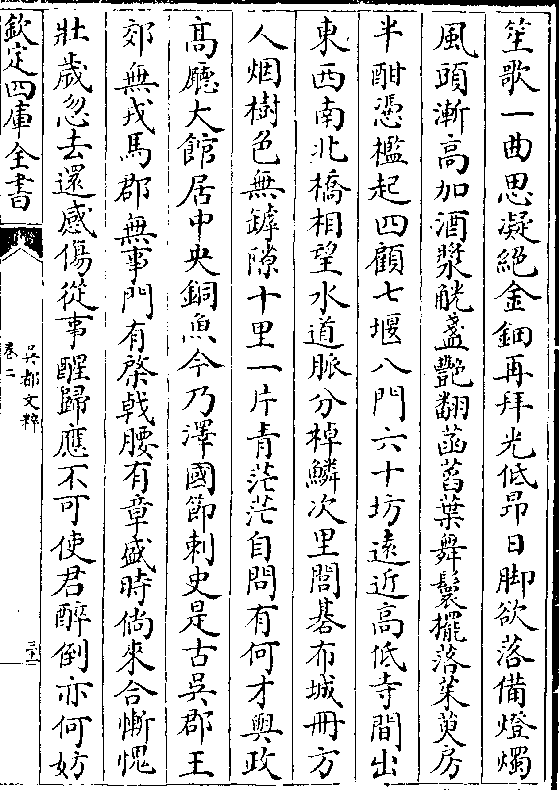 笙歌一曲思凝絕金鈿再拜光低昂日脚欲落備燈燭
風頭漸高加酒漿觥盞艷翻菡萏葉舞鬟擺落茱萸房
半酣憑檻起四顧七堰八門六十坊逺近高低寺間出
東西南北橋相望水道脈分棹鱗次里閭碁布城冊方
人烟樹色無罅隙十里一片青茫茫自問有何才與政
髙廳大館居中央銅魚今乃澤國節刺史是古吳郡王
郊無戎馬郡無事門有棨㦸腰有章盛時倘來合慚愧
壯歲忽去還感傷從事醒歸應不可使君醉倒亦何妨
欽定四庫全書
吳都文粹
卷二